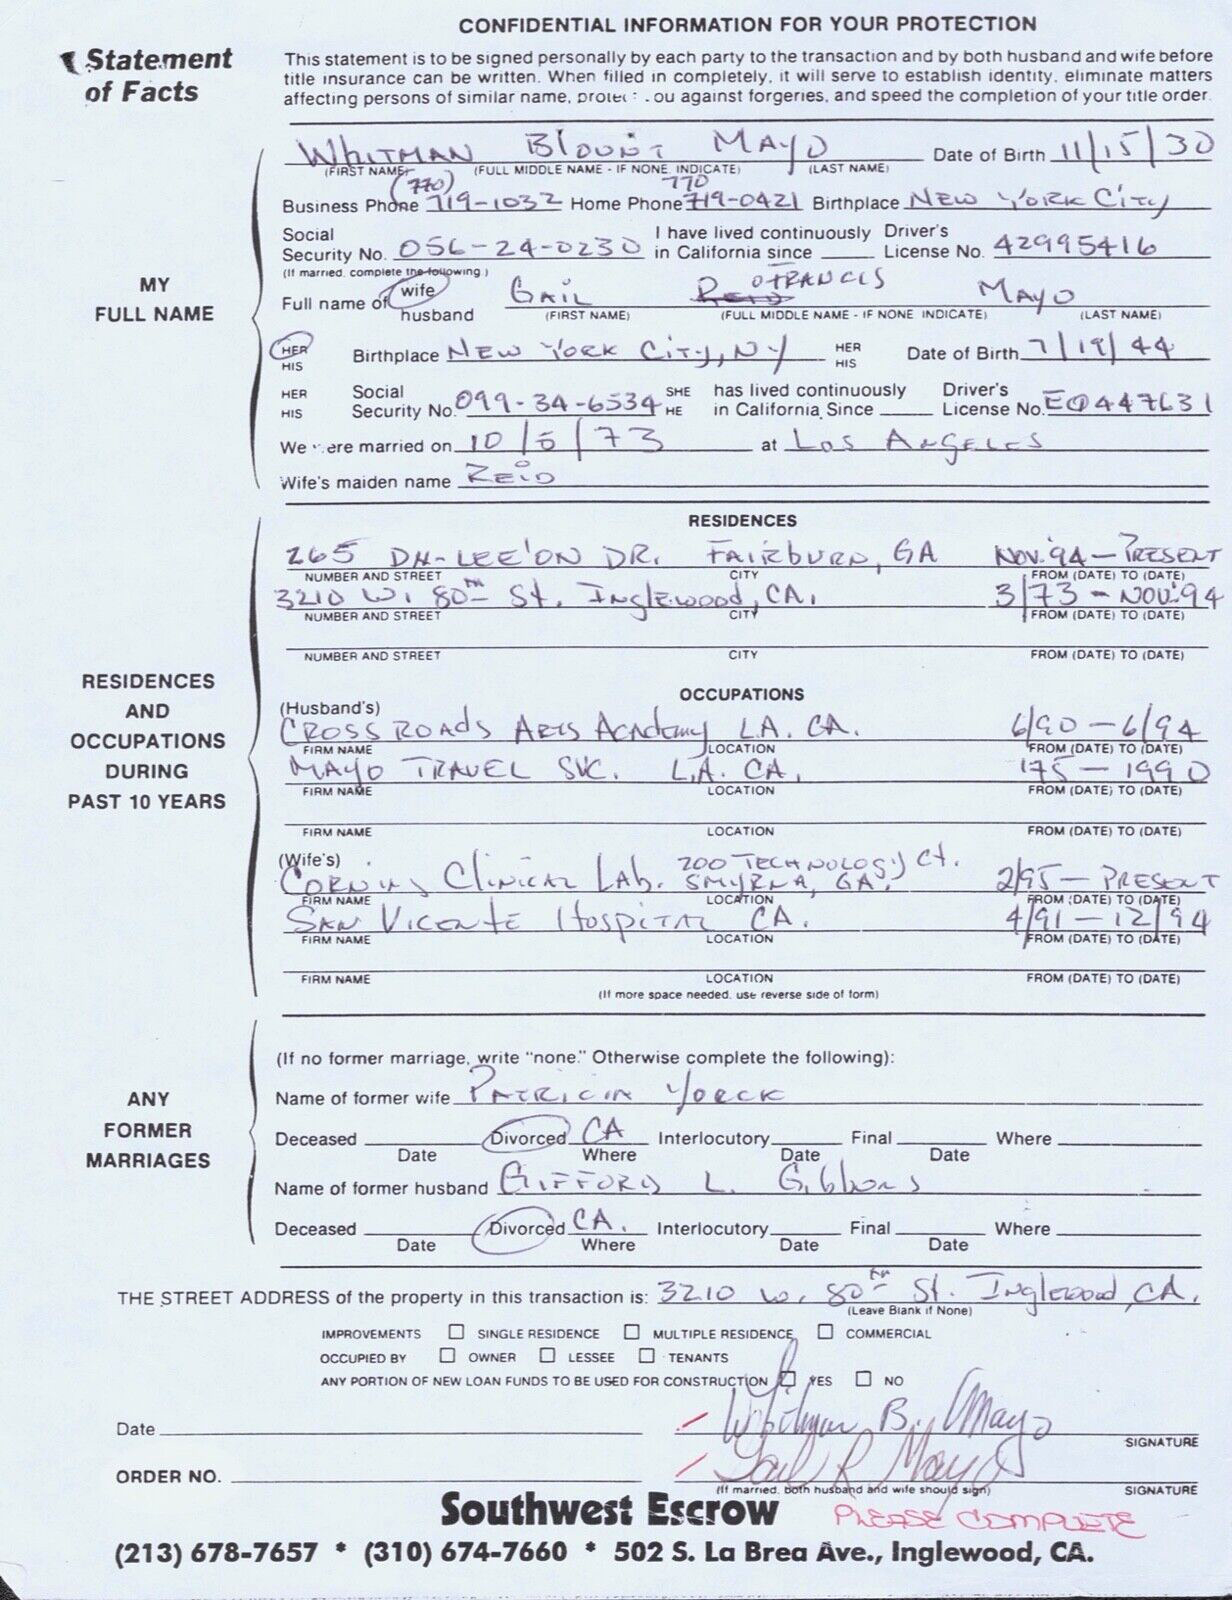 CONFIDENTIAL INFORMATION FOR YOUR PROTECTION
Statement of Facts
This statement is to be signed personally by each party to the transaction and by both husband and wife before
title insurance can be written. When filled in completely, it will serve to establish identity, eliminate matters
affecting persons of similar name, protect you against forgeries, and speed the completion of your title order.
MY FULL NAME
WHITMAN Blount MAYO Date of Birth 11/15/30
(FIRST NAME) (FULL MIDDLE NAME - IF NONE, INDICATE) (LAST NAME)
(770) 770
Business Phone 719-1032 Home Phone 719-0421 Birthplace NEW YORK CITY
Social Security No. 056-24-0230 I have lived continuously in California since Driver's License No. 42995416
(If married, complete the following.)
Full name of wife husband GAIL REID FRANCIS MAYO
(FIRST NAME) (FULL MIDDLE NAME - IF NONE INDICATE) (LAST NAME)
HER HIS Birthplace NEW YORK CITY, NY HER HIS Date of Birth 7/19/44
HER HIS Social Security No. 099-34-6534 SHE HE has lived continuously in California Since Driver's License No. EO447631
We were married on 10/5/73 at LOS ANGELES
Wife's maiden name REID
RESIDENCES AND OCCUPATIONS DURING PAST 10 YEARS
RESIDENCES
265 DH-LEE'ON DR. FAIRBURN, GA NOV. '94 - PRESENT
NUMBER AND STREET CITY FROM (DATE) TO (DATE)
3210 W. 80th St. Inglewood, CA. 3/73 - NOV. '94
NUMBER AND STREET CITY FROM (DATE) TO (DATE)
NUMBER AND STREET CITY FROM (DATE) TO (DATE)
OCCUPATIONS
(Husband's)
CROSSROADS ARTS Academy L.A. CA. 6/90 - 6/94
FIRM NAME LOCATION FROM (DATE) TO (DATE)
MAYO TRAVEL SVC. L.A. CA. 175 - 1990
FIRM NAME LOCATION FROM (DATE) TO (DATE)
FIRM NAME LOCATION FROM (DATE) TO (DATE)
(Wife's)
Corning Clinical Lab. 200 TECHNOLOGY Ct. SMYRNA, GA. 2/95 - PRESENT
FIRM NAME LOCATION FROM (DATE) TO (DATE)
SAN VICENTE HOSPITAL CA. 4/91 - 12/94
FIRM NAME LOCATION FROM (DATE) TO (DATE)
FIRM NAME LOCATION FROM (DATE) TO (DATE)
(If more space needed, use reverse side of form)
ANY FORMER MARRIAGES
(If no former marriage, write "none." Otherwise complete the following):
Name of former wife PATRICIA YORCK
Deceased Divorced CA Interlocutory Final Where
Date Where Date Date
Name of former husband GIFFORD L. Gibbons
Deceased Divorced CA. Interlocutory Final Where
Date Where Date Date
THE STREET ADDRESS of the property in this transaction is: 3210 W. 80th St. Inglewood, CA.
(Leave Blank if None)
IMPROVEMENTS SINGLE RESIDENCE MULTIPLE RESIDENCE COMMERCIAL
OCCUPIED BY OWNER LESSEE TENANTS
ANY PORTION OF NEW LOAN FUNDS TO BE USED FOR CONSTRUCTION YES NO
Date Whitman B. Mayo
SIGNATURE
ORDER NO. Gail R Mayo
(If married, both husband and wife should sign) SIGNATURE
Southwest Escrow PLEASE COMPLETE
(213) 678-7657 * (310) 674-7660 * 502 S. La Brea Ave., Inglewood, CA.